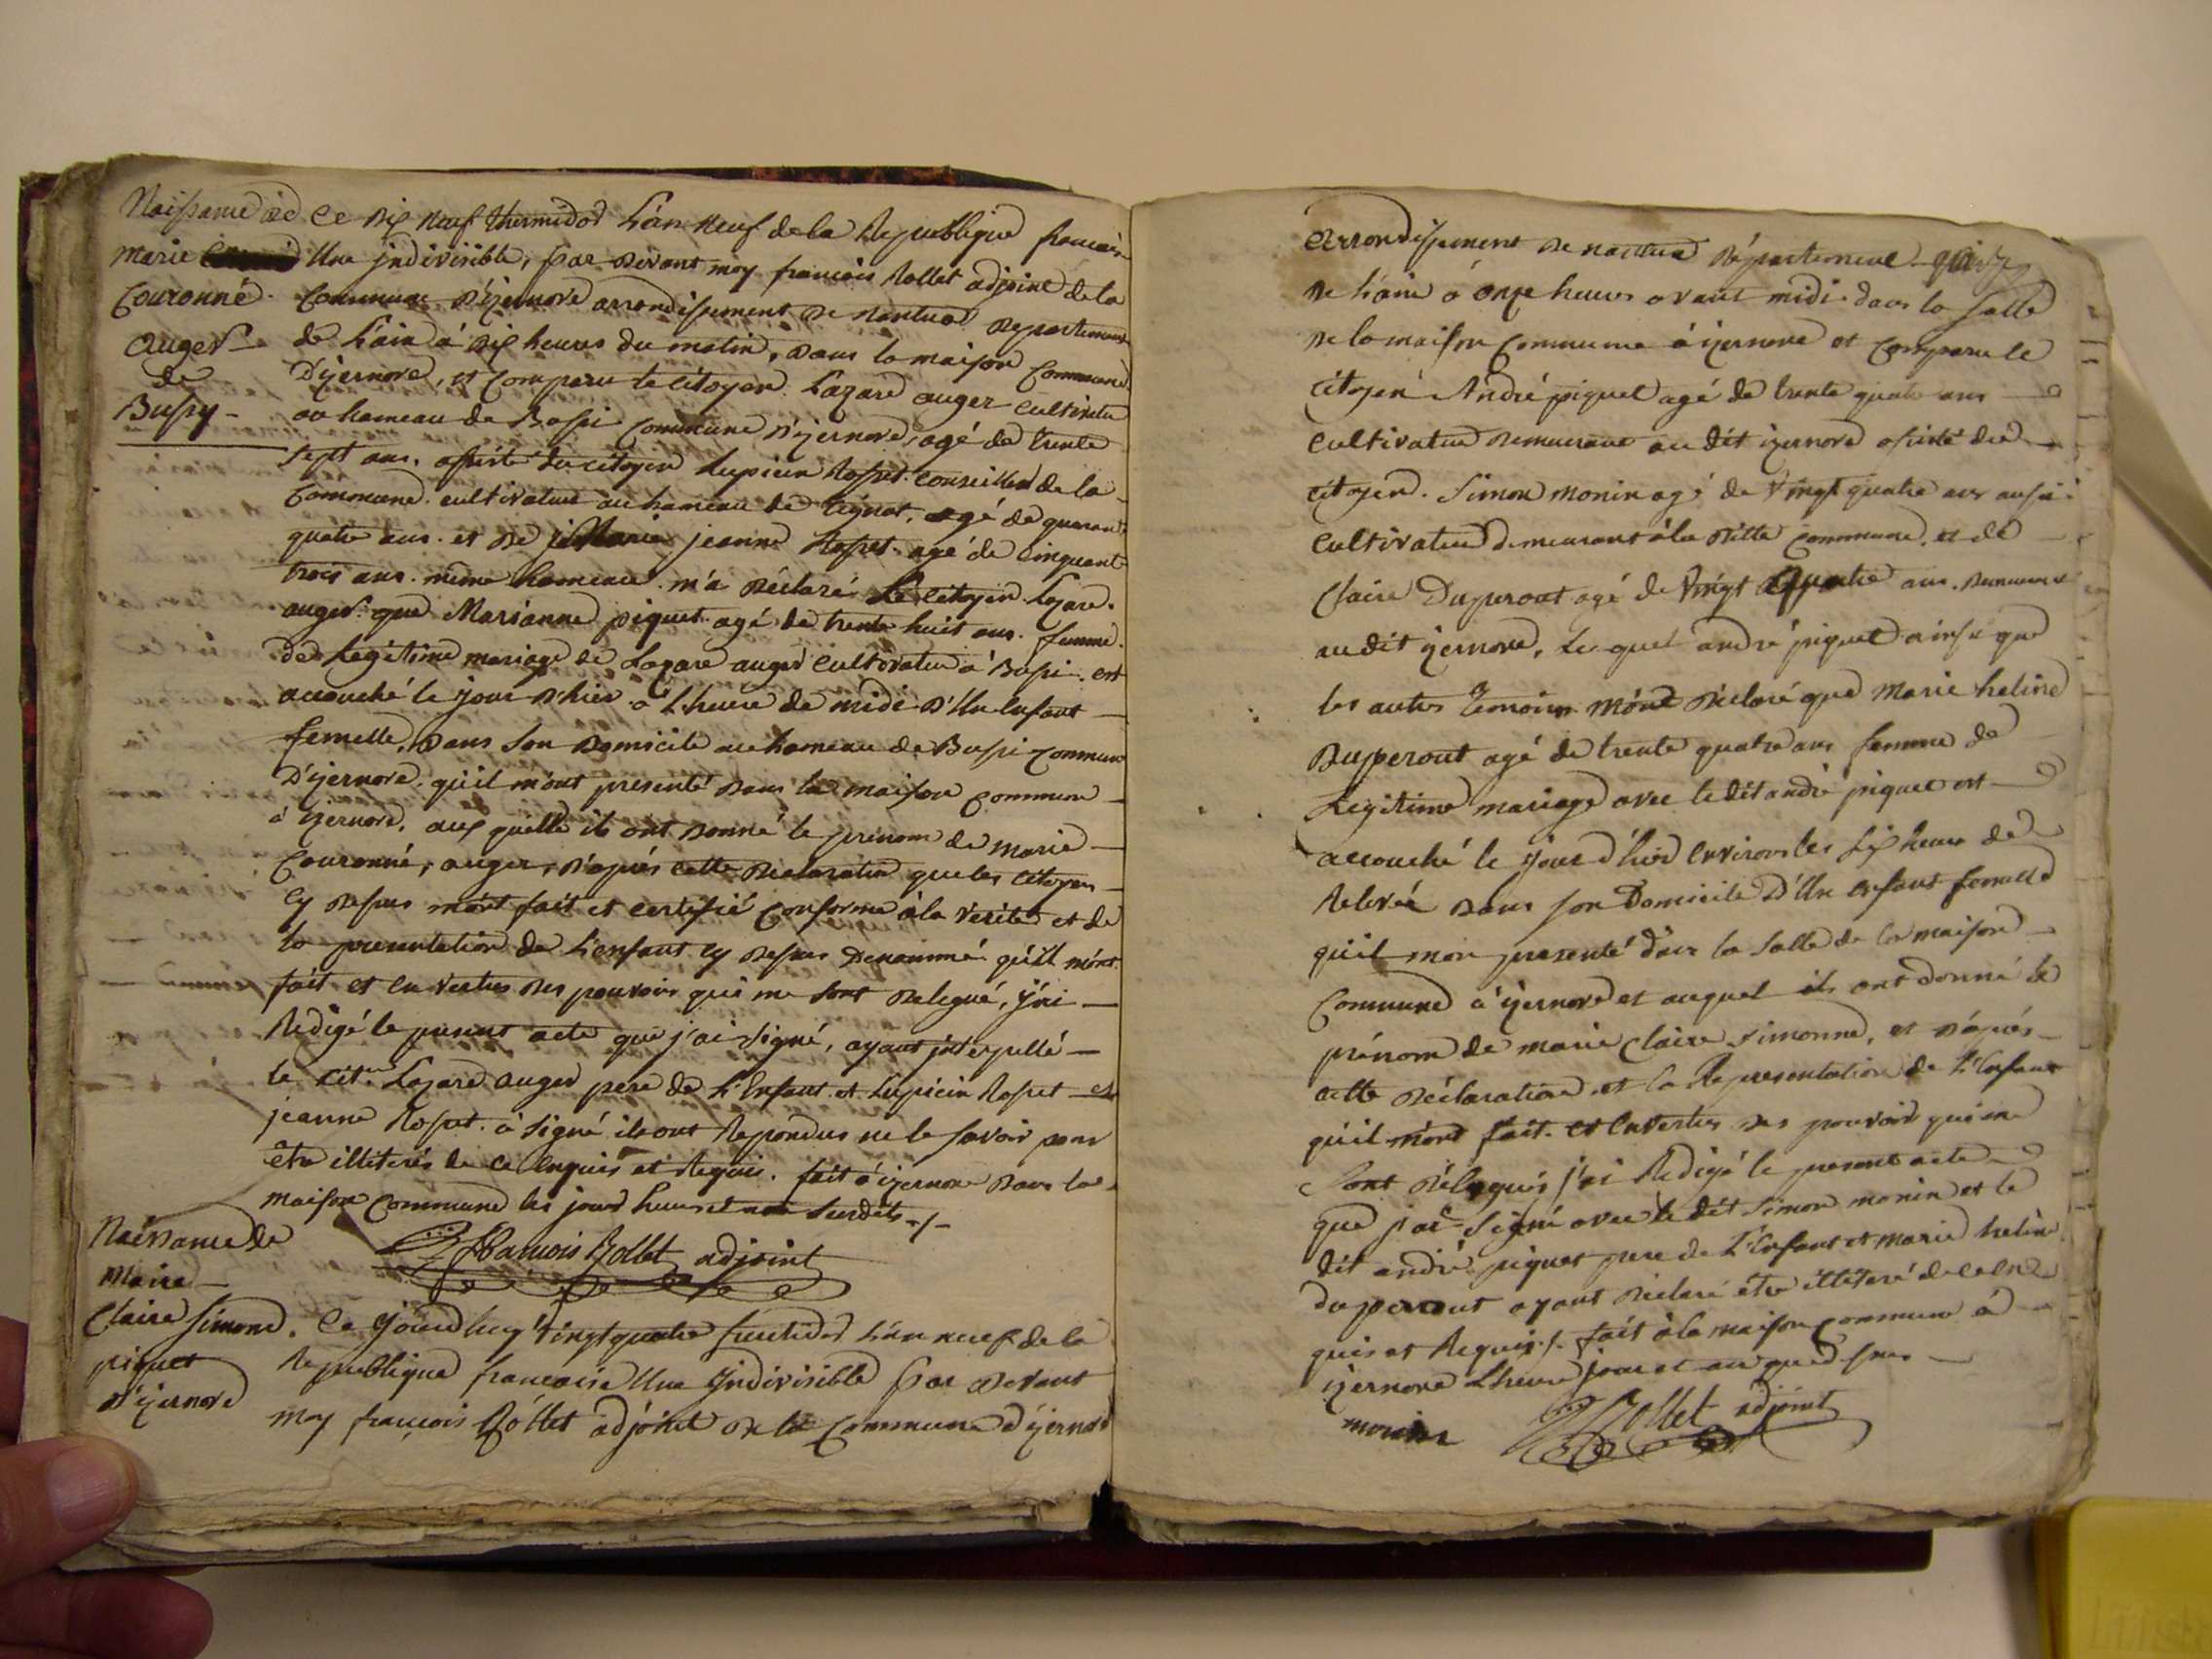 Naissance de
marie
Couronné
auger
de
Bussy
Ce dix neuf thermidor L'an neuf de la Republique francais
Une jndivisible, par devant moy francois Rollet adjoint de la
Commune d'yzernore arrondissement de nantua departement
de L'ain à dix heures du matin, dans la maison commune
D'yzernore, et comparu le citoyen Lazare auger cultivateur
au hameau de Bussi commune d'yzernore, agé de trente
sept ans. assisté du citoyen Lupicin Rosset conseiller de la
commune cultivateur au hameau de tignat, agé de quarante
quatre ans. et de Marie jeanne Rosset agé de cinquante
trois ans. même hameau. m'a déclaré Le citoyen Lazare
auger que Marianne piquet agé de trente huit ans. femme
de Legitime mariage de Lazare auger cultivateur à Bussi. est
accouché le jour d'hier à L'heure de midi d'Un Enfant
femelle, dans son domicile au hameau de Bussi commune
D'yzernore, qu'il m'ont presenté dans la maison commune
à yzernore. aux quelle ils ont donné le prenom de marie
Couronné, auger, d'après cette declaration que les citoyens
cy dessus m'ont fait et certifié conforme à la vérité et de
la presentation de L'enfant cy dessus denommé qu'il m'ont
fait et en vertus des pouvoir qui me sont delegué, j'ai
Redigé le present acte que j'ai signé, ayant jnterpellé
le cit.en Lazare auger pere de L'Enfant et Lupicin Rosset et
jeanne Rosset à signé ils ont Repondus ne le savoir pour
etre illiterés de ce Enquis et Requis. fait à yzernore dans la
maison commune les jour heure et an susdits ./.
francois Rollet adjoint
Naissance de
Marie
Claire Simone
piquet
d'yzernore
Ce jourd'huy Vingt quatre fructidor L'an neuf de la
Republique francaise Une Jndivisible par devant
moy francois Rollet adjoint de la Commune d'yzernore
arrondissement de nantua département
de L'ain à onze heures avant midi dans la salle
de la maison commune à yzernore et comparu le
citoyen André piquet agé de trente quatre ans
cultivateur demeurant au dit yzernore assisté du
citoyen Simon monin agé de Vingt quatre ans aussi
cultivateur demeurant à la ditte commune, et de
Claire Duperout agé de Vingt quatre ans. demeurant
audit yzernore, Le quel andré piquet ainsi que
les autres temoins m'ont déclaré que Marie heline
Duperout agé de trente quatre ans femme de
Legitime mariage avec le dit andré piquet est
accouché le jour d'hier Environ les six heures de
Relevée dans son Domicile D'Un enfant femelle
qu'il mon presenté dans la salle de la maison
Commune à yzernore et auquel ils ont donné le
prénom de marie Claire simonne, et d'après
cette déclaration et la Representation de L'Enfant
qu'il m'ont fait. et En vertus des pouvoir qui me
sont délegués j'ai Redigé le present acte
que j'ai signé avec le dit simon monin et le
dit andré piquet pere de L'Enfant et marie heline
duperout ayant déclaré étre illiteré de ce en
quis et Requis ./. fait à la maison commune à
yzernore L'heure jour et an que dessus
monin
Rollet adjoint